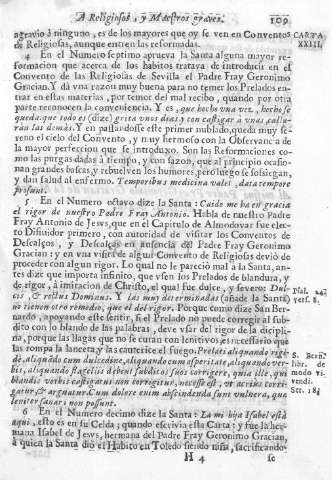 A Religiosos, y Maestros graves.
109
agravio à ninguno, es de los mayores que oy se ven en Conventos
de Religiosas, aunque entren las reformadas.
CARTA
XXIII.
4 En el Numero septimo aprueva la Santa alguna mayor re-
formacion que acerca de los habitos tratava de introducir en el
Convento de las Religiosas de Sevilla el Padre Fray Geronimo
Gracian. Y dà vna razon muy buena para no temer los Prelados en-
trar en estas materias, por temer del mal recibo, quando por otra
parte reconocen la conveniencia. Y es, que hecho vna vez, luego se
queda: que todo es (dize) grita vnos dias, y con castigar à vnas, calla-
ràn las demàs. Y en passandosse este primer nublado, queda muy se-
reno el cielo del Convento, y muy hermoso con la Observancia de
la mayor perfeccion que se introduxo. Son las Reformaciones co-
mo las purgas dadas à tiempo, y con sazon, que al principio ocasio-
nan grandes bascas, y rebuelven los humores, pero luego se sossiegan,
y dan salud al enfermo. Temporibus medicina valet, data tempore
prosunt.
5 En el Numero octavo dize la Santa: Caìdo me ha en gracia
el rigor de nuestro Padre Fray Antonio. Habla de nuestro Padre
Fray Antonio de Jesvs, que en el Capitulo de Almodovar fue elec-
to Difinidor primero, con autoridad de visitar los Conventos de
Descalços, y Descalças en ausencia del Padre Fray Geronimo
Gracian: y en vna visita de algun Convento de Religiosas deviò de
proceder con algun rigor. Lo qual no le pareciò mal à la Santa, an-
tes dize que importa infinito, que vsen los Prelados de blandura, y
de rigor, à imitacion de Christo, el qual fue dulce, y severo: Dul-
cis, & rectus Dominus. Y las muy determinadas (añade la Santa)
no tienen otro remedio, que el del rigor. Porque como dize San Ber-
nardo, apoyando este sentir, si el Prelado no puede corregir al subdi-
to con lo blando de las palabras, deve vsar del rigor de la diciplina,
porque las llagas que no se curan con lenitivos, es necessario que
las rompa la lanceta, y las cauterice el fuego.
Psal. 24.
vers. 8.
S. Bern.
libr. de
modo vi-
vendi.
6 En el Numero decimo dize la Santa: La mi hija Isabel està
aqui, esto es en su Celda; quando escrivia esta Carta: y fue la her-
mana Isabel de Jesvs, hermana del Padre Fray Geronimo Gracian,
à quien la Santa diò el Habito en Toledo siendo niña, sacrificando-
H 4
se